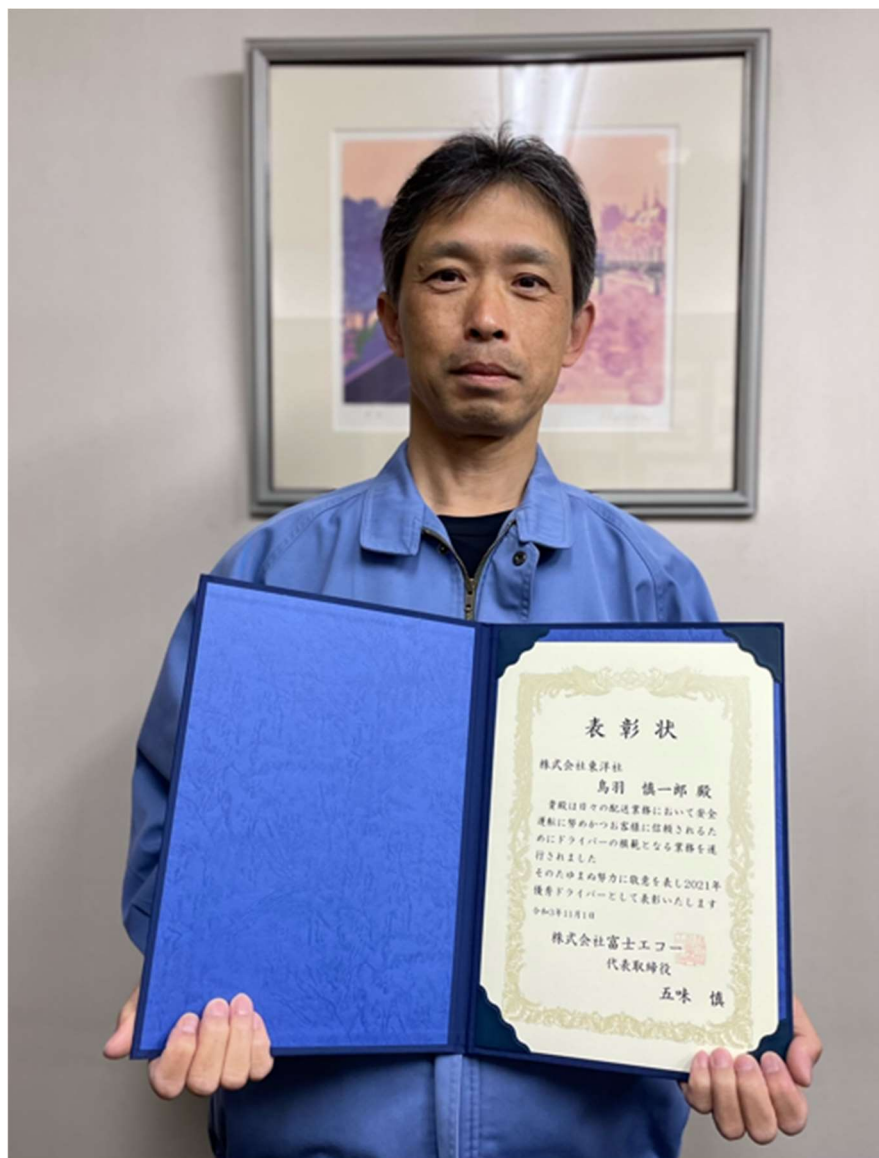 表彰状
株式会社東洋社
鳥羽 慎一郎 殿
貴殿は日々の配送業務において安全
運転に努めかつお客様に信頼されるた
めにドライバーの模範となる業務を遂
行されました
そのたゆまぬ努力に敬意を表し2021年
優秀ドライバーとして表彰いたします
令和3年11月1日
株式会社富士エコー
代表取締役
五味 慎